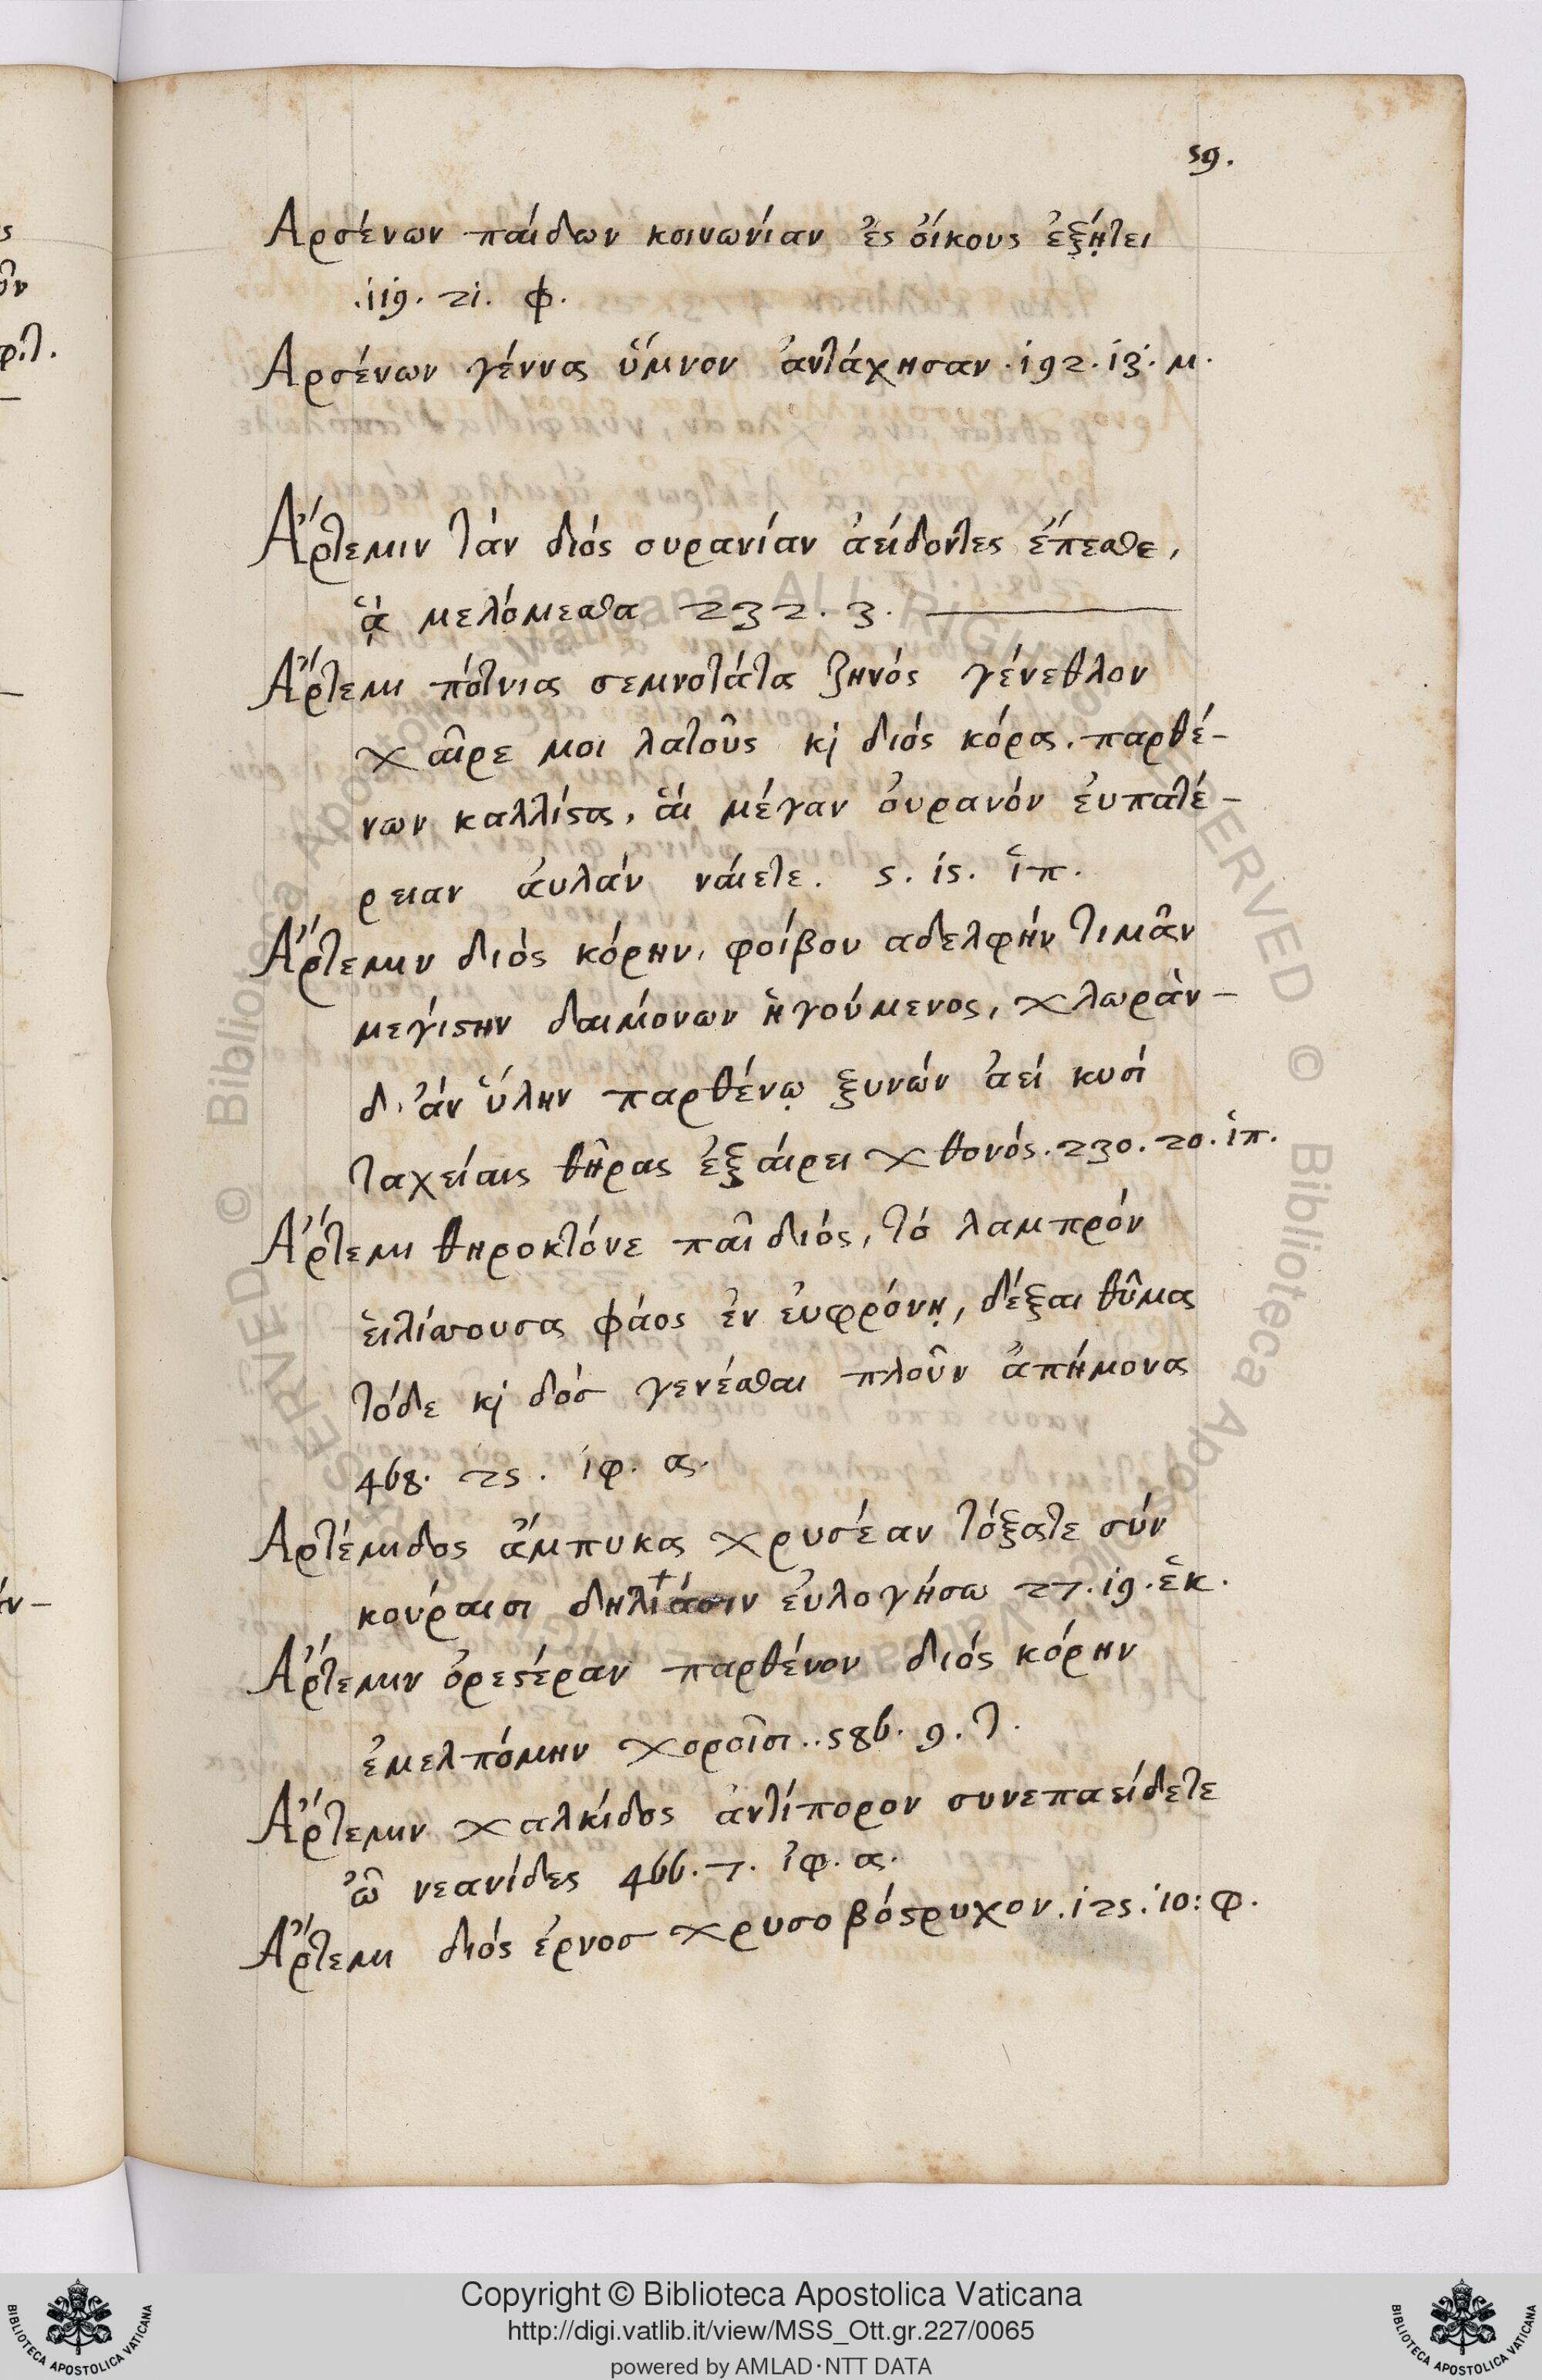 59.
Αρσένων παίδων κοινωνίαν ἐς ὄίκους ἐξήτει
.119. 21. φ.
Αρσένων γέννας ὕμνον ἀντάχησαν . 192. 13. μ.
Αρτεμιν τάν διός ουρανίαν ἀείδοντες ἕπεσθε,
ᾇ μελόμεσθα 232. 3.
Αρτεμι πότνια σεμνοτάτα ζηνός γένεθλον
χαῖρε μοι λατοῦς κὶ διός κόρα. παρθέ-
νων καλλίστα, ἅι μέγαν ὀυρανόν ἐυπατέ-
ρειαν ἀυλάν νάιετε. 5. 15. ἱπ.
Αρτεμιν διός κόρην, φοίβου αδελφήν τιμᾶν
μεγίστην δαιμόνων ἡγούμενος, χλωράν-
δ' ἀν ὕλην παρθένῳ ξυνών ἀεί κυσί
ταχείαις θῆρας ἐξάιρει χθονός. 230. 20. ἱπ.
Αρτεμι θηροκτόνε παῖ διός, τό λαμπρόν
ἑιλίσσουσα φάος ἐν ἐυφρόνῃ, δέξαι θῦμα
τόδε κὶ δόσ γενέσθαι πλοῦν ἀπήμονα
468. 25. ιφ. α.
Αρτέμιδος ἄμπυκα χρυσέαν τόξατε σύν
κούραισι δηλιάσιν ἐυλογήσω 27. 19. ἑκ.
Αρτεμιν ὀρεστέραν παρθένον διός κόρην
ἐμελπόμην χοροῖσι.. 586. 9. τ.
Αρτεμιν χαλκίδος ἀντίπορον συνεπαείδετε
ὦ νεανίδες 466. 7. ἰφ. α.
Αρτεμι διός ἐρνοσ χρυσοβόστρυχον. 125. 10: φ.
Copyright © Biblioteca Apostolica Vaticana
http://digi.vatlib.it/view/MSS_Ott.gr.227/0065
powered by AMLAD·NTT DATA